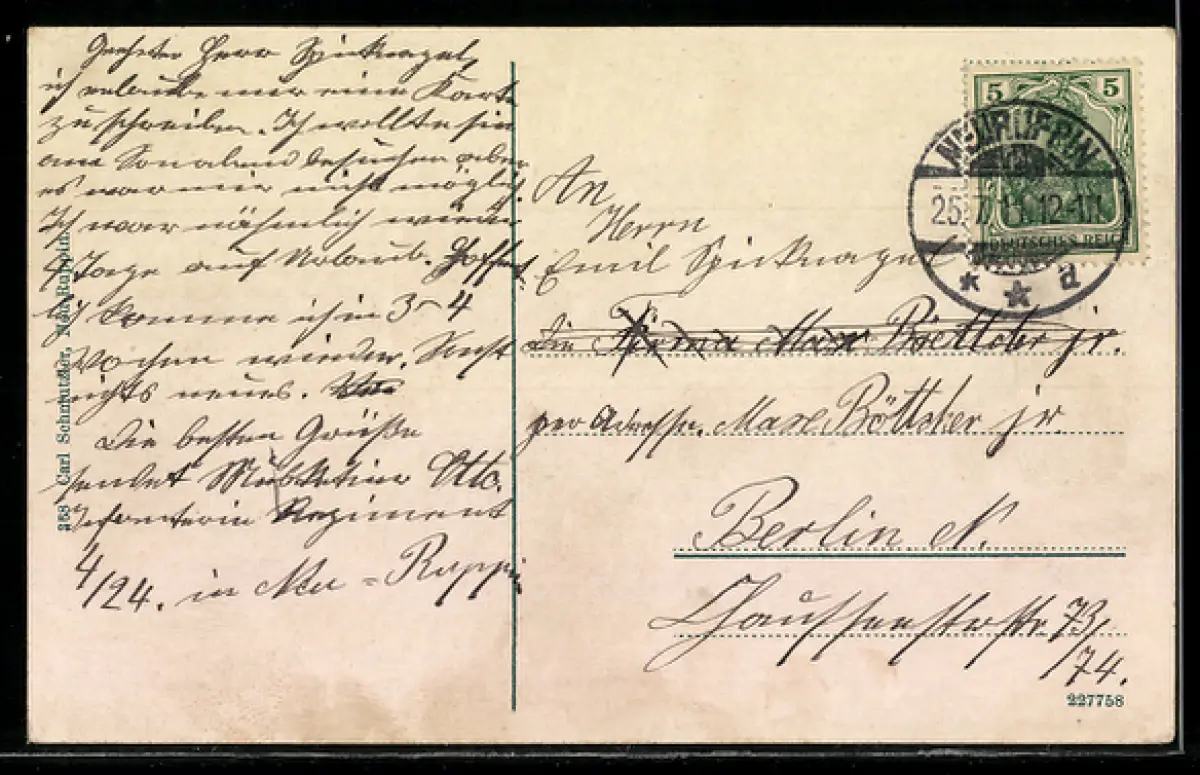 Geehrter Herr Spieknagel,
ich erlaube mir eine Karte
zu schreiben. Ich wollte sie
am Sonabend besuchen aber
es war mir nicht möglich.
Ich war nähmlich wieder
4 Tage auf Urlaub. Hoffent
lich komme ich in 3-4
Wochen wieder. Sonst
nichts neues.
Die besten Grüße
sendet Musketier Otto.
Infanterie Regiment
4/24. in Neu=Ruppin
258 Carl Schmutzler, Neu-Ruppin.
5 5
DEUTSCHES REICH
NEURUPPIN
25.7.11. 12-1N.
* * a
An
Herrn
Emil Spieknagel
die Firma Max Böttcher jr.
per Adresse. Max Böttcher jr.
Berlin N.
Chausseestraße 73/
74.
227758